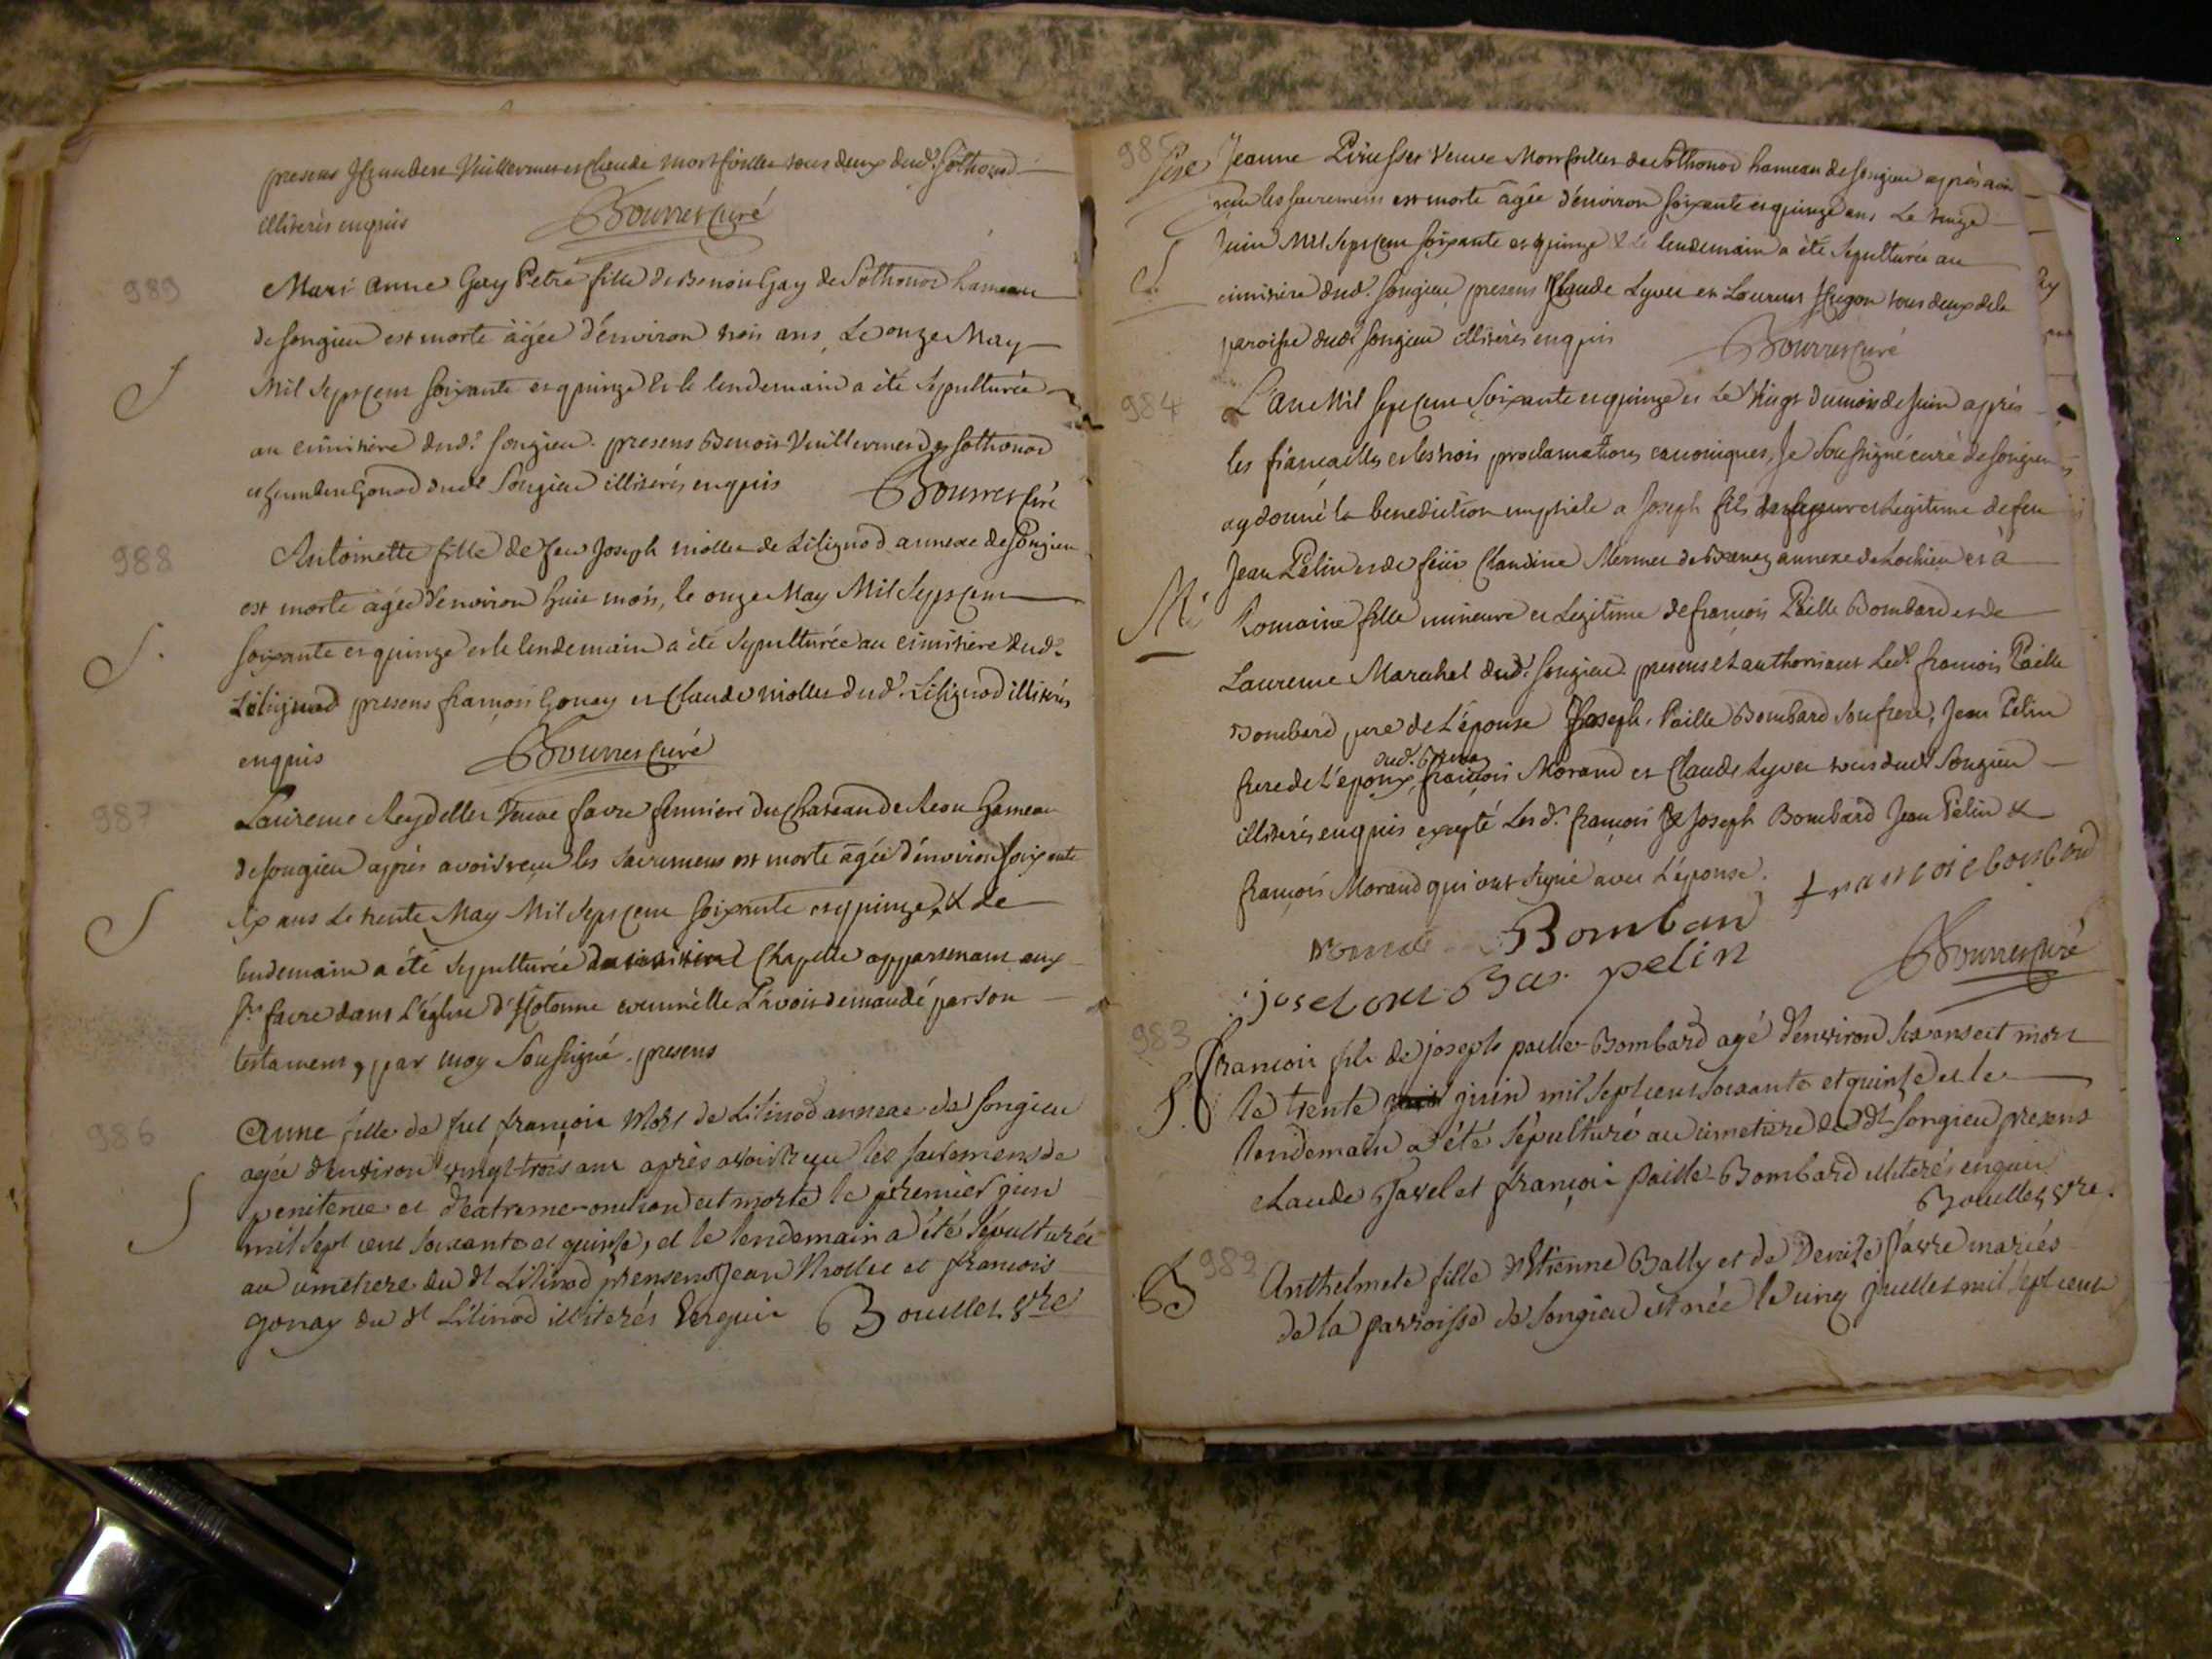 presens humbert Vuillermet et Claude Mortfoillet tous deux dud. Sothonod
illiterés enquis Bourret Curé
989
Mari anne Gay Petre fille de Benoit Gay de Sothonod hameau
de Songieu est morte âgée d'environ trois ans, Le onze May
Mil Sept Cent soixante et quinze et le lendemain a été Sepulturée
S
au cimitière dud. Songieu. presens Benoit Vuillermet de Sothonod
et humbert Gonod dud. Songieu illiterés enquis Bourret Curé
988
Antoinette fille de feu Joseph miollet de Lilignod annexe de Songieu
est morte âgée d'environ huit mois, le onze May Mil Sept Cent
soixante et quinze et le lendemain a été Sepulturée au cimitière dud.
S.
Lilignod presens françois Gonay et Claude miollet dud. Lilignod illiterés
enquis Bourret Curé
987
Laurence Reydellet Veuve favre fermiere du Chateau de Reou hameau
de Songieu après avoir recu les Sacremens est morte âgée d'environ soixante
dix ans Le trente May Mil Sept Cent soixante et quinze, & Le
S
lendemain a été Sepulturée Chapelle appartenant aux
Srs favre dans L'église d'hotonne comme elle L'avoit demandé par son
testament, par moy Soussigné. presens
986
Anne fille de feu françois Mort de Lilinod annexe de Songieu
agée d'environ vingt-trois ans après avoir reçu les sacremens de
S
penitence et d'extreme-onction est morte le premier juin
mil sept cent soixante et quinze, et le lendemain a été sépulturée
au cimetiere du dt Lilinod presens Jean Miollet et francois
gonay du dt Lilinod illiterés enquis Bouillet vre
985
Jeanne Pirusset Veuve Mortfoillet de Sothonod hameau de Songieu après avoir
recu les sacremens est morte âgée d'environ soixante et quinze ans Le treize
Juin Mil Sept Cent soixante et quinze & Le lendemain a été Sepulturée au
S
cimitière dud. Songieu presens Claude Lyvet et Laurent Hugon tous deux de la
paroisse dud. Songieu illiterés enquis Bourret Curé
984
L'an Mil Sept Cent Soixante et quinze et Le Vingt du mois de Juin après
les fiancailles et les trois proclamations canoniques, Je Soussigné curé de Songieu
ay donné la benediction nuptiale a Joseph fils et Legitime de feu
Jean Pelin et de feüe Claudine Mermet de Brenaz annexe de Lochieu et à
M
Romaine fille mineure et Legitime de françois Paille Bombard et de
Laurence Marechal dud. Songieu. presens et authorisant Led. francois Paille
Bombard pere de L'épouse Joseph Paille Bombard son frere, Jean Pelin
dud. Brenaz
frere de L'époux, francois Morand et Claude Lyvet tous dud. Songieu
illiterés enquis excepté Lesd. françois & Joseph Bombard Jean Pelin &
françois Morand qui ont Signé avec L'épouse.
francois bombard
Bomban
pelin
Bourret Curé
983
francois fils de joseph paille-Bombard agé d'environ six ans est mort
S.
le trente juin mil sept cent soixante et quinse et le
lendemain a été sépulturé au cimetiere du dt Songieu presens
claude Tavel et françois paille-Bombard illiterés enquis
Bouillet vre.
982
B
Anthelmete fille d'Etienne Bally et de Denise favre mariés
de la parroisse de Songieu est née le cinq juillet mil sept cent